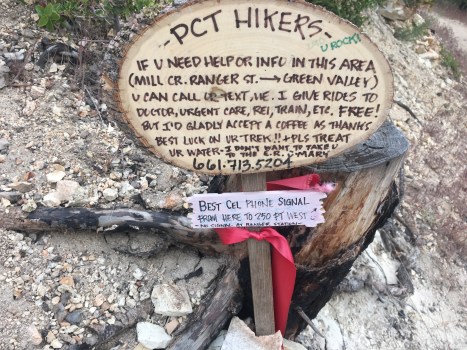 -PCT HIKERS-
U ROCK!
IF U NEED HELP OR INFO IN THIS AREA
(MILL CR. RANGER ST. → GREEN VALLEY)
U CAN CALL OR TEXT, ME. I GIVE RIDES TO
DOCTOR, URGENT CARE, REI, TRAIN, ETC. FREE!
BUT I'D GLADLY ACCEPT A COFFEE AS THANKS
BEST LUCK ON UR TREK!! + PLS TREAT
UR WATER - I DON'T WANT TO TAKE U
TO THE E.R. -MARY
661.713.5204
BEST CEL PHONE SIGNAL
FROM HERE TO 250 FT WEST
- NO SIGNAL AT RANGER STATION -